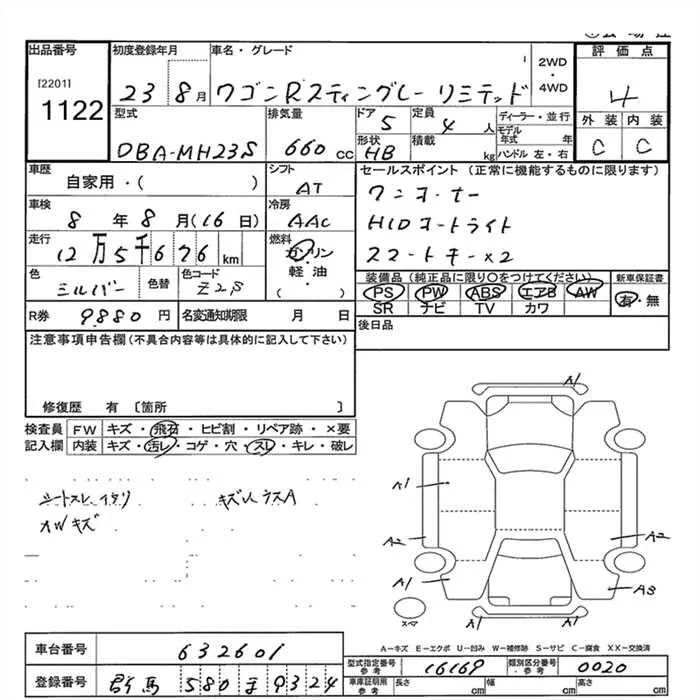 出品番号 初度登録年月 車名・グレード 評価点
[2201]
1122
23 8月 ワゴンRスティングレー リミテッド
2WD
・
4WD
4
型式 排気量 ドア 定員 ディーラー・並行
DBA-MH23S 660 cc 5 4 人
モデル年式 年
形状 積載 ハンドル 左・右
HB kg
外装 内装
C C
車歴 シフト セールスポイント (正常に機能するものに限ります)
自家用・( ) AT
ワンオーナー
車検 冷房
8 年 8 月(16 日) AAC
HIDオートライト
走行 燃料
12万5千676 km
ガソリン
軽油
( )
スマートキー×2
色 色替 色コード
シルバー Z2S
装備品(純正品に限り○をつけてください) 新車保証書
PS PW ABS エアB AW 有・無
SR ナビ TV カワ
R券 9880 円 名変通知期限 月 日
後日品
注意事項申告欄(不具合内容等は具体的に記入して下さい)
修復歴 有 〔箇所 〕
検査員 FW キズ・飛石・ヒビ割・リペア跡・×要
記入欄 内装 キズ・汚レ・コゲ・穴・スレ・キレ・破レ
シートスレ、
キズ
A
A1
A1
A2 A2
A1 A3
スペ
A1 A1
A-キズ E-エクボ U-凹み W-補修跡 S-サビ C-腐食 XX-交換済
車台番号 632601
型式指定番号 参考 16169 類別区分番号 参考 0020
登録番号 群馬 580 ま 9324
車庫証明用 参考 長さ cm 幅 cm 高さ cm